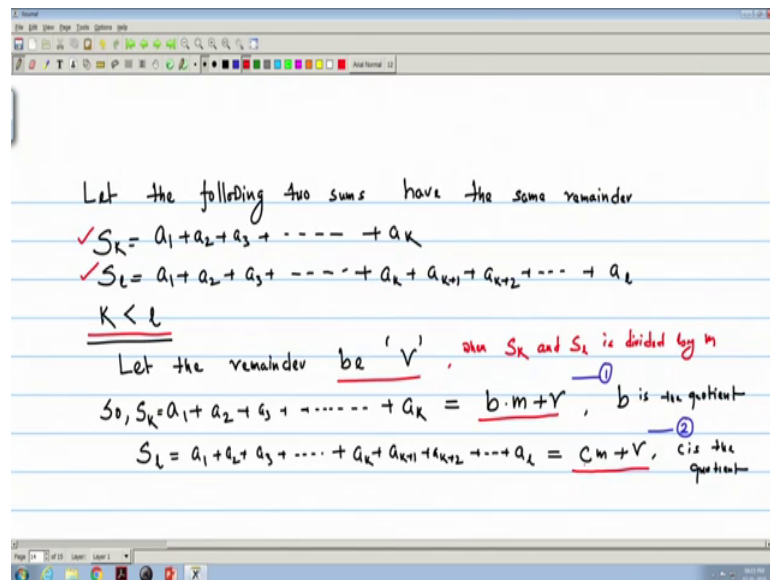 Journal
File Edit View Page Tools Options Help
Arial Normal 12
Let the following two sums have the same remainder
✓ S_K = a_1 + a_2 + a_3 + ----- + a_K
✓ S_l = a_1 + a_2 + a_3 + ----- + a_K + a_{K+1} + a_{K+2} + --- + a_l
K < l
Let the remainder be 'r', when S_K and S_l is divided by m
So, S_K = a_1 + a_2 + a_3 + ------ + a_K = b·m + r, b is the quotient —①
S_l = a_1 + a_2 + a_3 + ---- + a_K + a_{K+1} + a_{K+2} + --- + a_l = cm + r, c is the quotient —②
Page 14 of 15 Layer: Layer 1